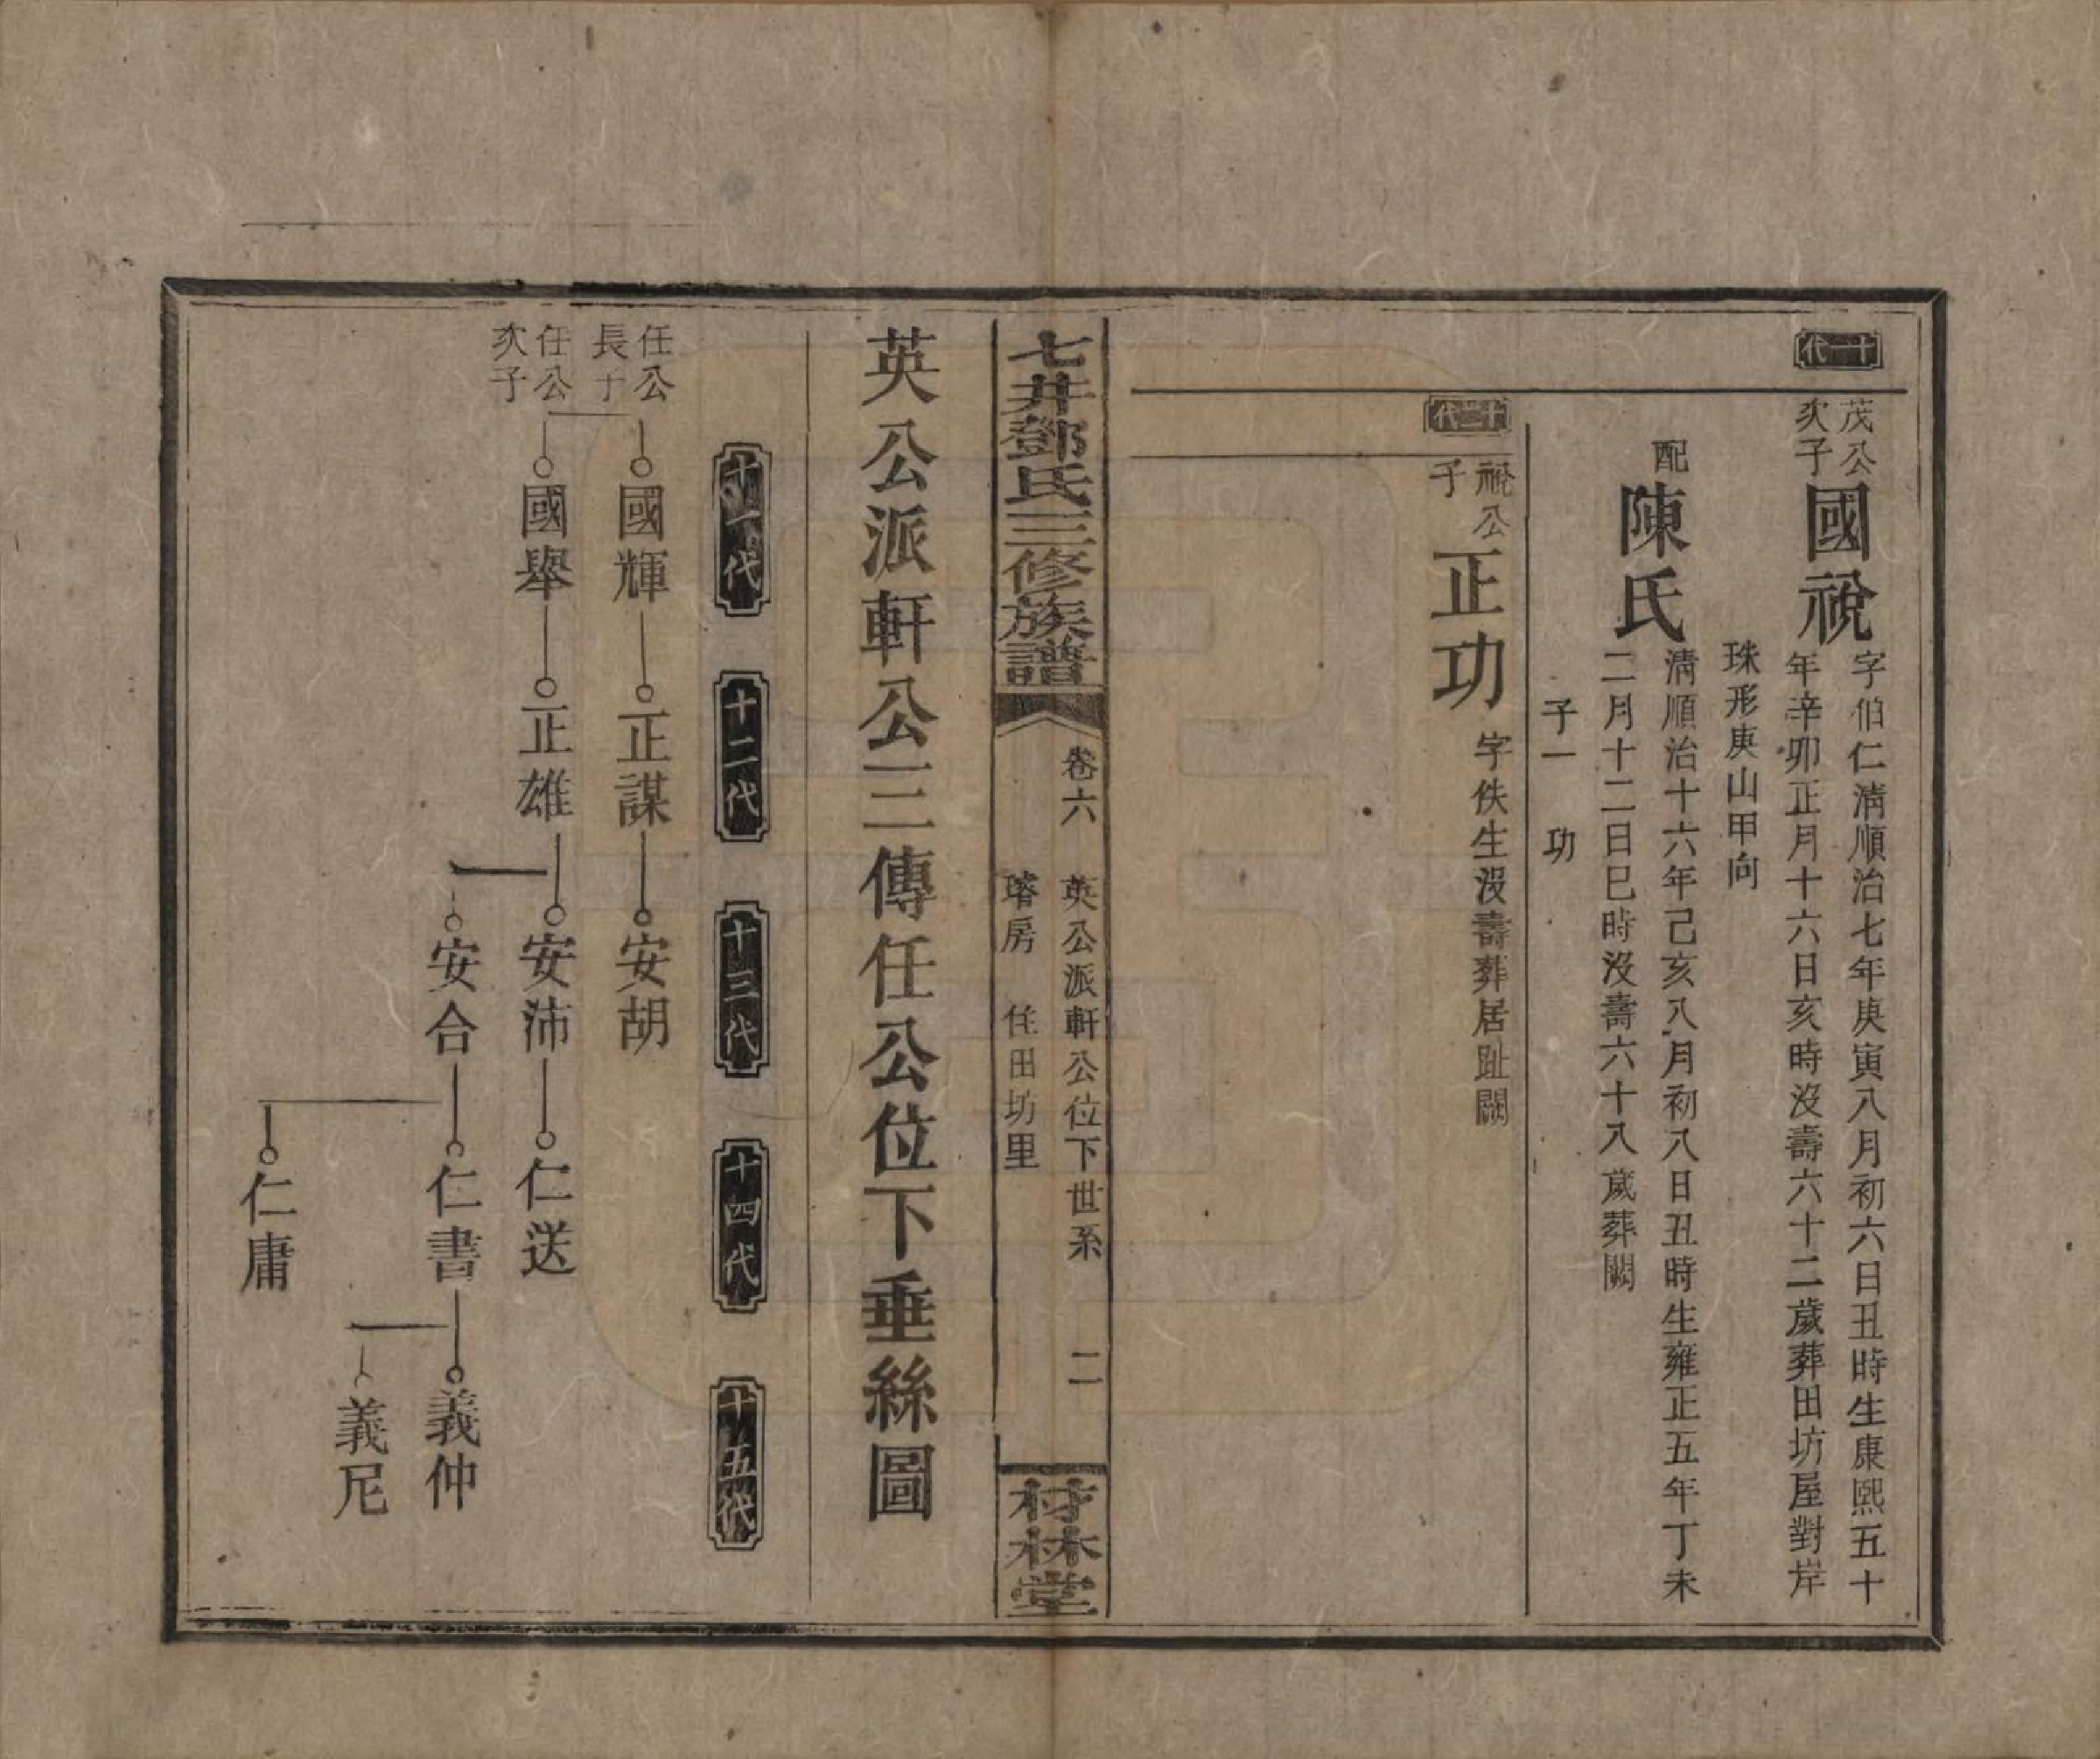 十一代
茂公
次子
國祱
字伯仁清順治七年庚寅八月初六日丑時生康熙五十
年辛卯正月十六日亥時沒壽六十二歲葬田坊屋對岸
珠形庚山甲向
配
陳氏
清順治十六年己亥八月初八日丑時生雍正五年丁未
二月十二日巳時沒壽六十八歲葬闕
子一　功
十二代
祱公
子
正功
字佚生沒壽葬居趾闕
七井鄧氏三修族譜
卷六　英公派軒公位下世系　二
瑃房　住田坊里
材林堂
英公派軒公三傳任公位下垂絲圖
十一代　十二代　十三代　十四代　十五代
任公
長子
國輝　正謀　安胡
任公
次子
國舉　正雄　安沛　仁送
安合　仁書　義仲
義尼
仁庸